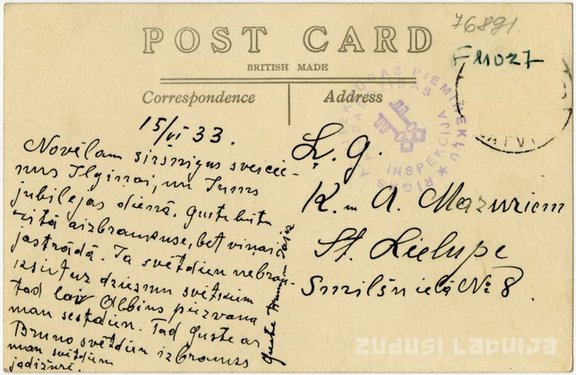 76891.
F 11027
POST CARD
BRITISH MADE
Correspondence
Address
RIGAS PIEMINEKĻU
INSPEKCIJA
LATVI
15/VI 33.
Novēlam sirsnīgus sveicie-
nus Ilgiņai, un Jums
jubilejas dienā. Guste būtu
rītā aizbraukuse, bet viņai
jāstrādā. Ja svētdien nebrau-
ksiet uz dziesmu svētkiem
tad lai Albins piezvana
man sestdien. Tad Guste ar
Bruno svētdien izbrauks
man svētdien
jādižurē.
Guste
Ļ. g.
K. un A. Mazuriem
St. Lielupe
Smilšu ielā № 8.
zudusi Latvija